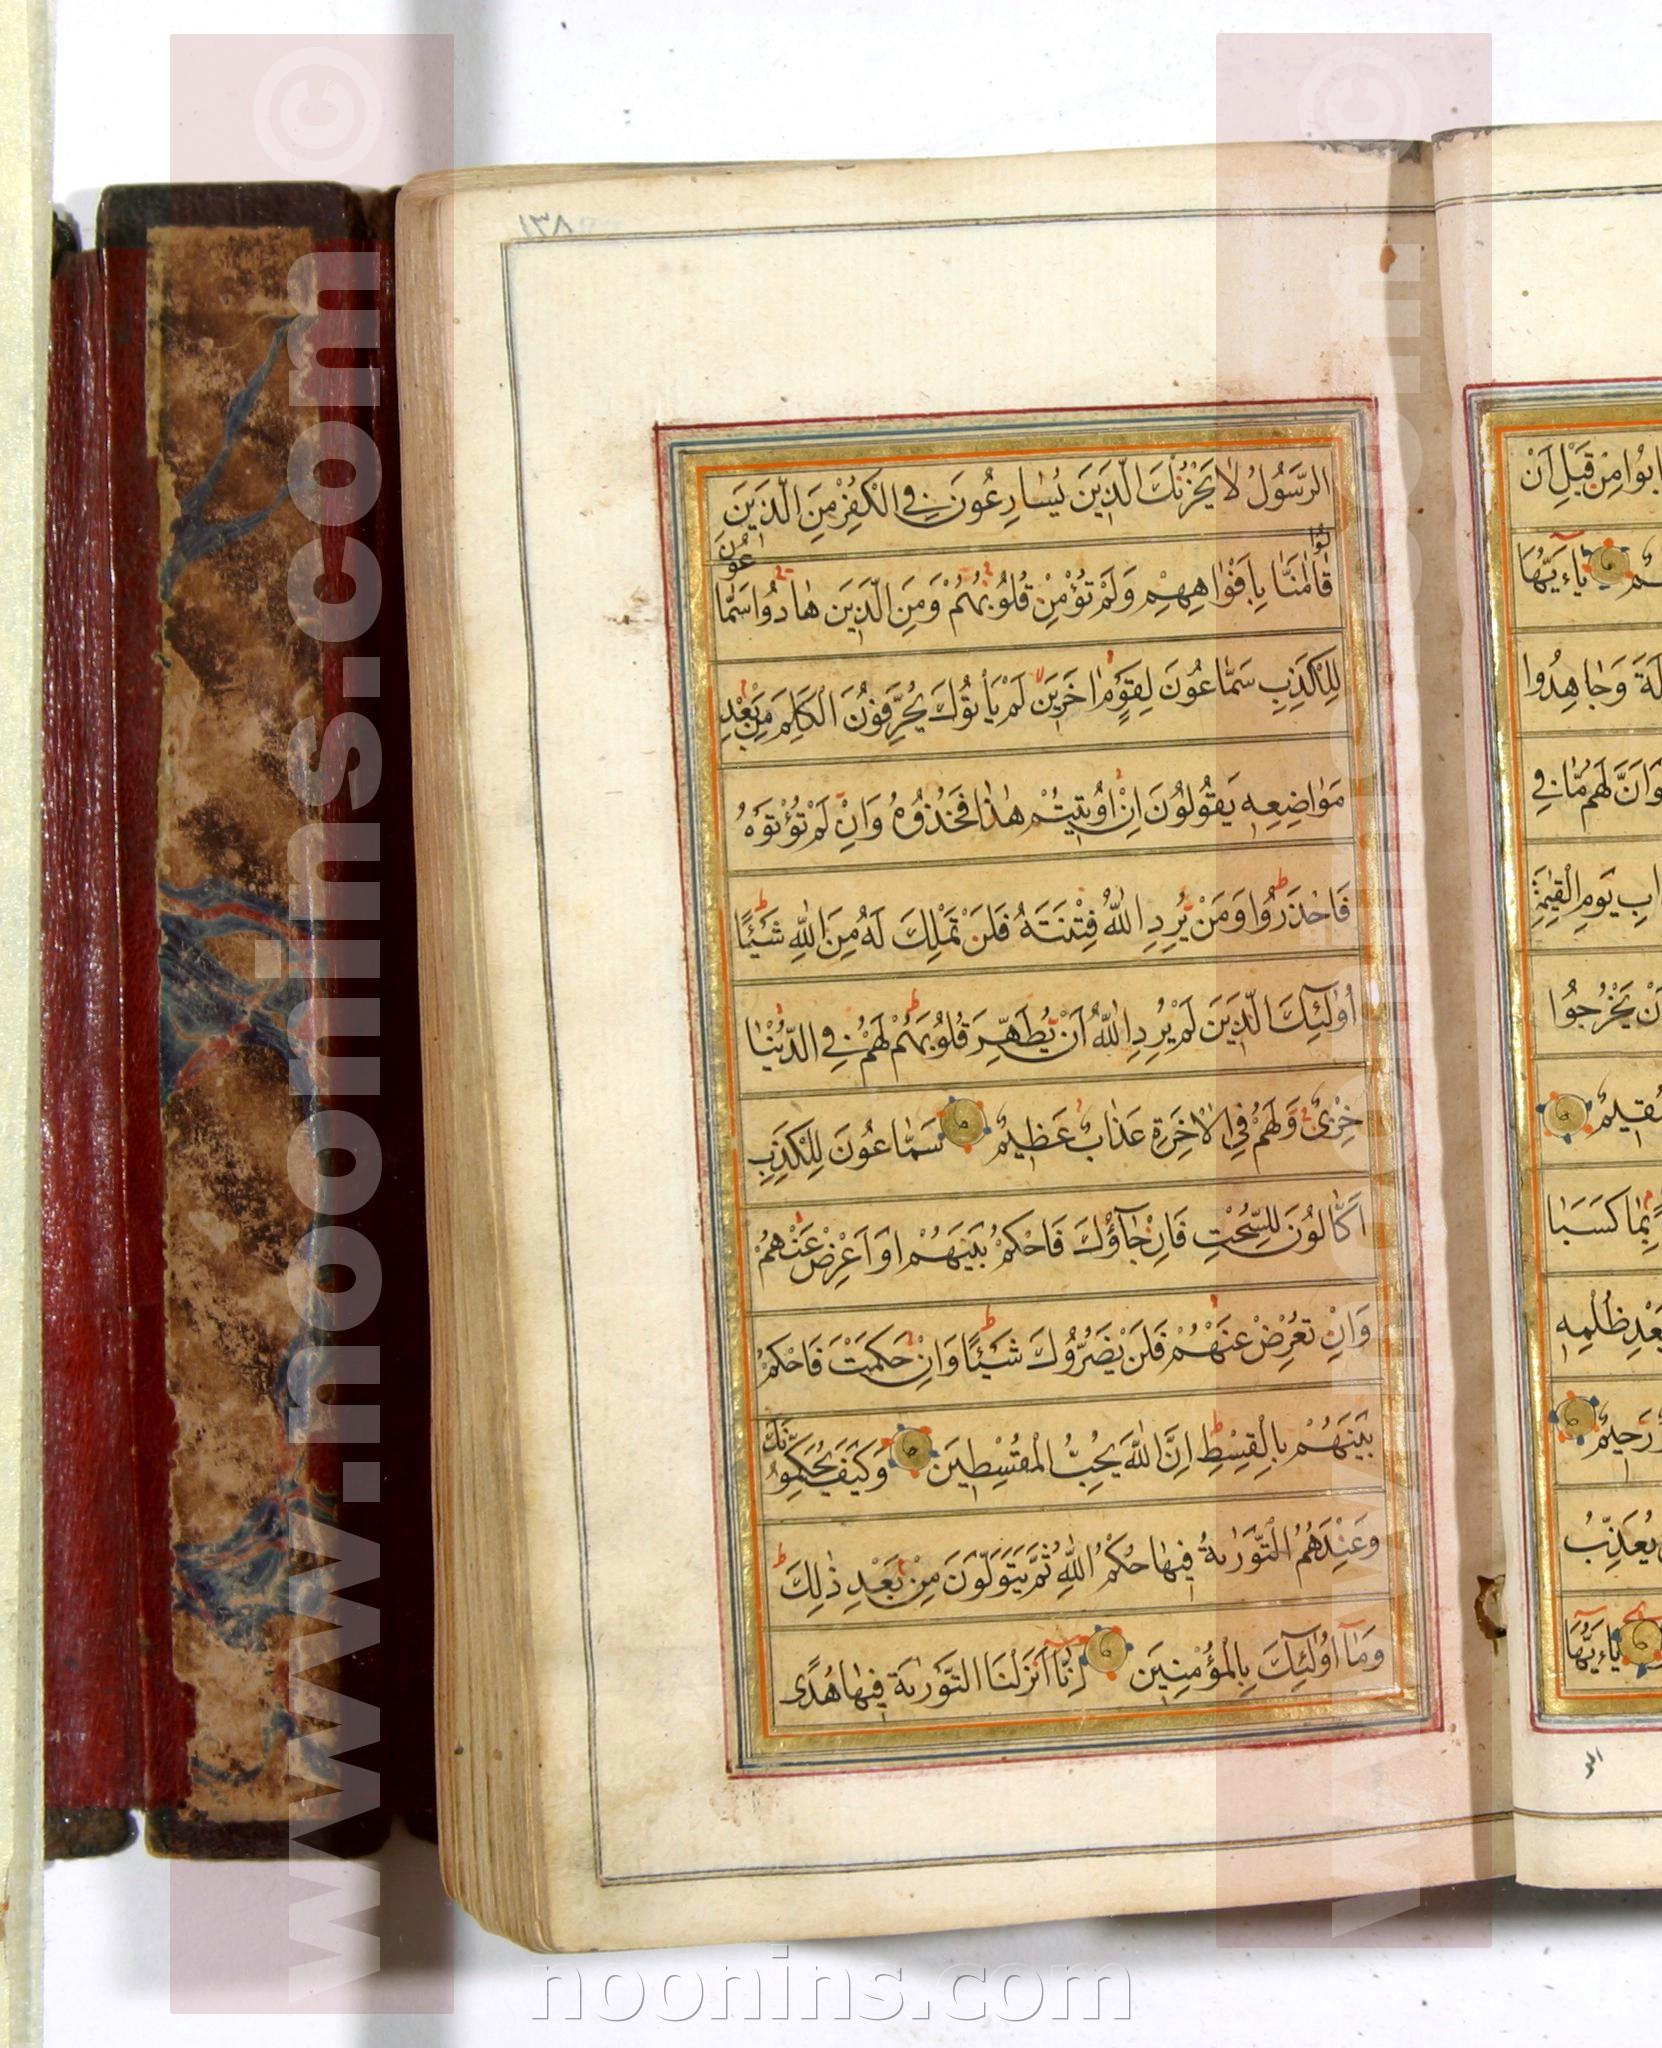 ١٣٨
الرَّسُولُ لَا يَحْزُنْكَ الَّذِينَ يُسَارِعُونَ فِي الْكُفْرِ مِنَ الَّذِينَ
قَالُوا آمَنَّا بِأَفْوَاهِهِمْ وَلَمْ تُؤْمِنْ قُلُوبُهُمْ وَمِنَ الَّذِينَ هَادُوا سَمَّاعُونَ
لِلْكَذِبِ سَمَّاعُونَ لِقَوْمٍ آخَرِينَ لَمْ يَأْتُوكَ يُحَرِّفُونَ الْكَلِمَ مِنْ بَعْدِ
مَوَاضِعِهِ يَقُولُونَ إِنْ أُوتِيتُمْ هٰذَا فَخُذُوهُ وَإِنْ لَمْ تُؤْتَوْهُ
فَاحْذَرُوا وَمَنْ يُرِدِ اللّٰهُ فِتْنَتَهُ فَلَنْ تَمْلِكَ لَهُ مِنَ اللّٰهِ شَيْئًا
أُولٰئِكَ الَّذِينَ لَمْ يُرِدِ اللّٰهُ أَنْ يُطَهِّرَ قُلُوبَهُمْ لَهُمْ فِي الدُّنْيَا
خِزْيٌ وَلَهُمْ فِي الْآخِرَةِ عَذَابٌ عَظِيمٌ سَمَّاعُونَ لِلْكَذِبِ
أَكَّالُونَ لِلسُّحْتِ فَإِنْ جَآؤُكَ فَاحْكُمْ بَيْنَهُمْ أَوْ أَعْرِضْ عَنْهُمْ
وَإِنْ تُعْرِضْ عَنْهُمْ فَلَنْ يَضُرُّوكَ شَيْئًا وَإِنْ حَكَمْتَ فَاحْكُمْ
بَيْنَهُمْ بِالْقِسْطِ إِنَّ اللّٰهَ يُحِبُّ الْمُقْسِطِينَ وَكَيْفَ يُحَكِّمُونَكَ
وَعِنْدَهُمُ التَّوْرٰيةُ فِيهَا حُكْمُ اللّٰهِ ثُمَّ يَتَوَلَّوْنَ مِنْ بَعْدِ ذٰلِكَ
وَمَآ أُولٰئِكَ بِالْمُؤْمِنِينَ إِنَّآ أَنْزَلْنَا التَّوْرٰيةَ فِيهَا هُدًى
مِنْ قَبْلِ أَنْ
يَآءَيُّهَا
وَجَاهِدُوا
وَأَنَّ لَهُمْ مَا فِي
يَوْمِ الْقِيٰمَةِ
أَنْ يَخْرُجُوا
مُقِيمٌ
بِمَا كَسَبَا
بَعْدِ ظُلْمِهِ
رَحِيمٌ
يُعَذِّبُ
يَآءَيُّهَا
الر
www.noonins.com ©
www.noonins.com ©
noonins.com